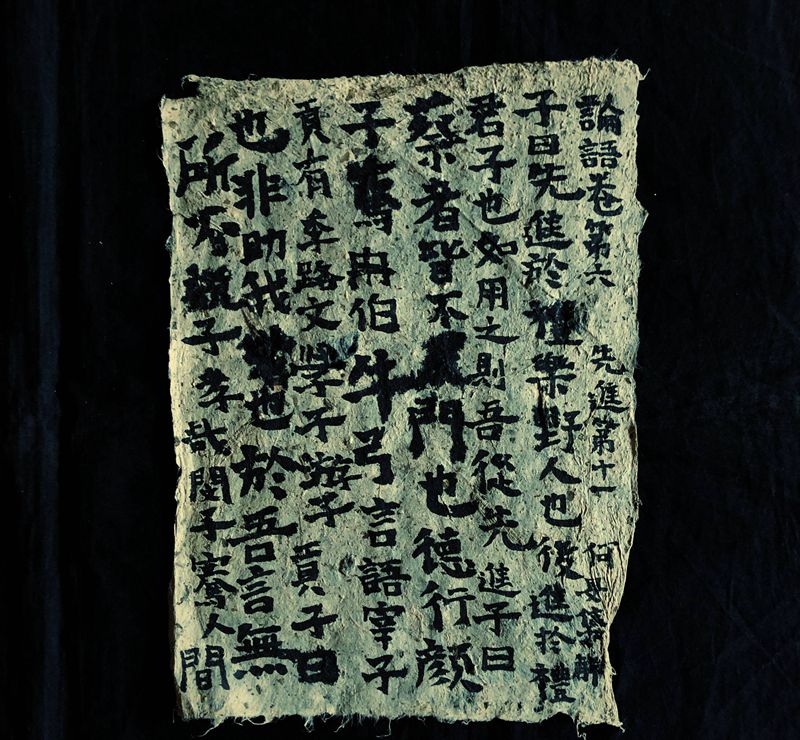 論語卷第六 先進第十一 何晏集解
子曰先進於禮樂野人也後進於禮
君子也如用之則吾從先進子曰
蔡者皆不門也德行顏
子騫冉伯牛弓言語宰子
貢有季路文學子游子貢子曰
也非助我也於吾言無
所不説子孝哉閔子騫人間